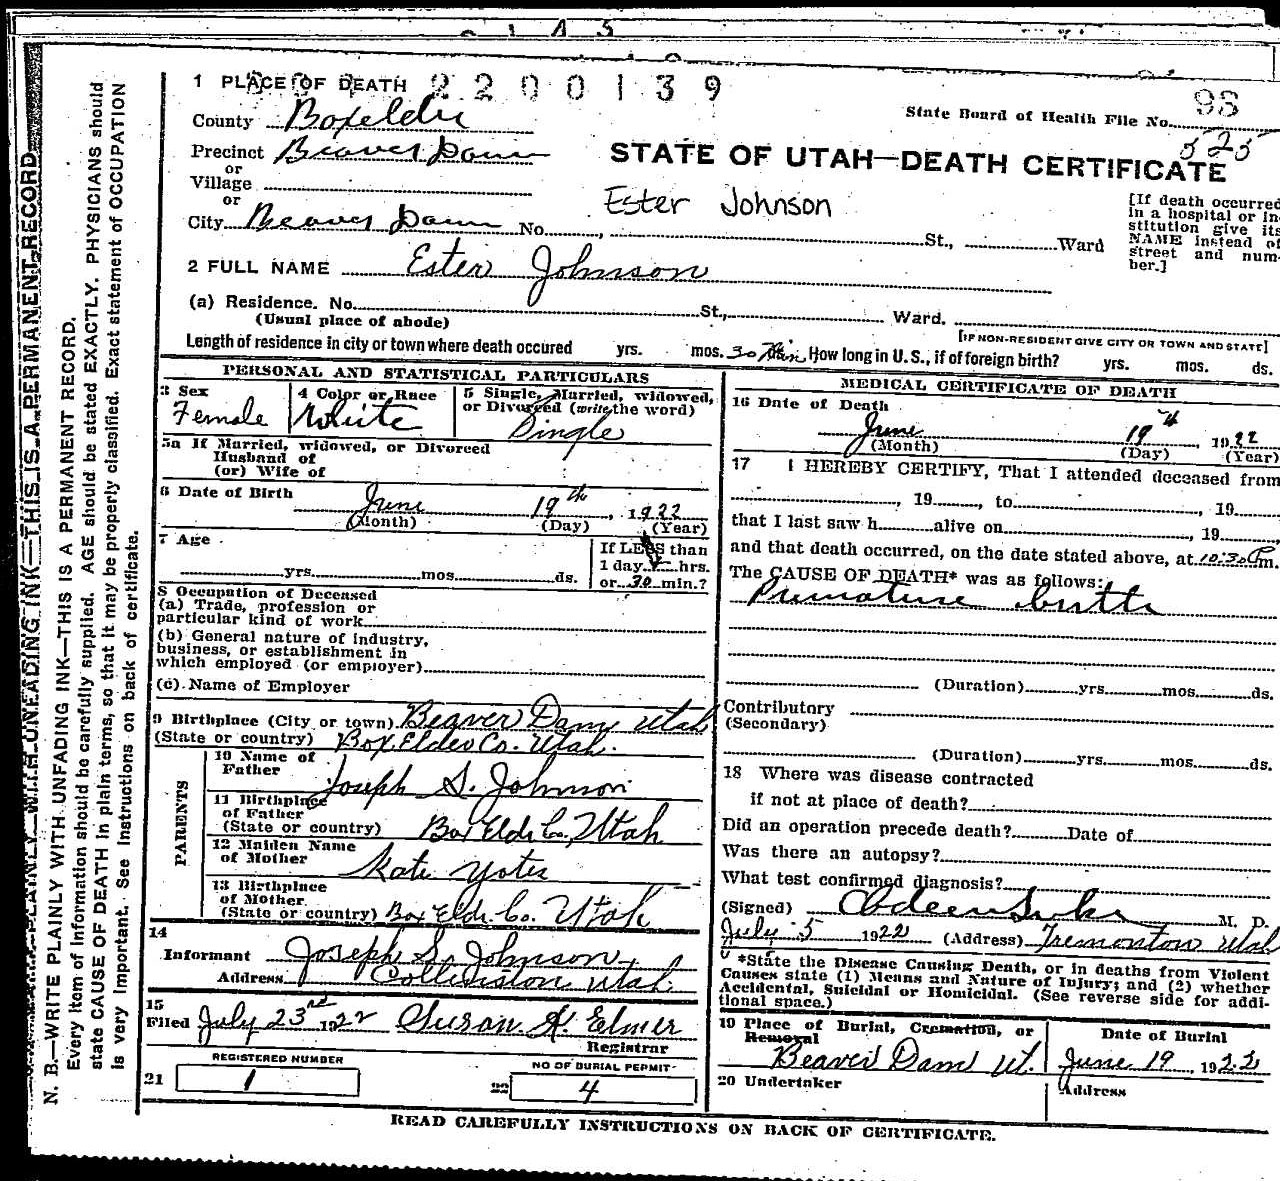 1 PLACE OF DEATH 2200139
State Board of Health File No. 98
525
County Boxelder
Precinct Beaver Dam
or
Village
or
City Beaver Dam No. St., Ward
STATE OF UTAH—DEATH CERTIFICATE
Ester Johnson
[If death occurred
in a hospital or in-
stitution give its
NAME instead of
street and num-
ber.]
2 FULL NAME Ester Johnson
(a) Residence. No. St., Ward.
(Usual place of abode) [IF NON-RESIDENT GIVE CITY OR TOWN AND STATE]
Length of residence in city or town where death occured yrs. mos. 30 Min How long in U. S., if of foreign birth? yrs. mos. ds.
PERSONAL AND STATISTICAL PARTICULARS
3 Sex
Female
4 Color or Race
White
5 Single, Married, widowed,
or Divorced (write the word)
Single
5a If Married, widowed, or Divorced
Husband of
(or) Wife of
6 Date of Birth
June 19th, 1922
(Month) (Day) (Year)
7 Age
yrs. mos. ds.
If LESS than
1 day hrs.
or 30 min.?
8 Occupation of Deceased
(a) Trade, profession or
particular kind of work
(b) General nature of industry,
business, or establishment in
which employed (or employer)
(c) Name of Employer
9 Birthplace (City or town) Beaver Dam Utah
(State or country) Box Elder Co. Utah.
PARENTS
10 Name of
Father Joseph S. Johnson
11 Birthplace
of Father
(State or country) Box Eldr Co, Utah
12 Maiden Name
of Mother Kate Yates
13 Birthplace
of Mother
(State or country) Box Eldr. Co. Utah
14
Informant Joseph S. Johnson
Address Collinston Utah
15
Filed July 23rd 1922 Susan H. Elmer
Registrar
REGISTERED NUMBER
21 1
NO OF BURIAL PERMIT
22 4
MEDICAL CERTIFICATE OF DEATH
16 Date of Death
June 19th, 1922
(Month) (Day) (Year)
17 I HEREBY CERTIFY, That I attended deceased from
, 19 , to , 19
that I last saw h alive on , 19
and that death occurred, on the date stated above, at 10:30 P m.
The CAUSE OF DEATH* was as follows:
Premature birth
(Duration) yrs. mos. ds.
Contributory
(Secondary)
(Duration) yrs. mos. ds.
18 Where was disease contracted
if not at place of death?
Did an operation precede death? Date of
Was there an autopsy?
What test confirmed diagnosis?
(Signed) M. D.
July 5 1922 (Address) Tremonton Utah
*State the Disease Causing Death, or in deaths from Violent
Causes state (1) Means and Nature of Injury; and (2) whether
Accidental, Suicidal or Homicidal. (See reverse side for addi-
tional space.)
19 Place of Burial, Cremation, or
Removal
Beaver Dam Ut.
Date of Burial
June 19, 1922
20 Undertaker
Address
READ CAREFULLY INSTRUCTIONS ON BACK OF CERTIFICATE.
WRITE PLAINLY WITH UNFADING INK—THIS IS A PERMANENT RECORD
N. B.—WRITE PLAINLY WITH UNFADING INK—THIS IS A PERMANENT RECORD.
Every item of information should be carefully supplied. AGE should be stated EXACTLY. PHYSICIANS should
state CAUSE OF DEATH in plain terms, so that it may be properly classified. Exact statement of OCCUPATION
is very important. See instructions on back of certificate.